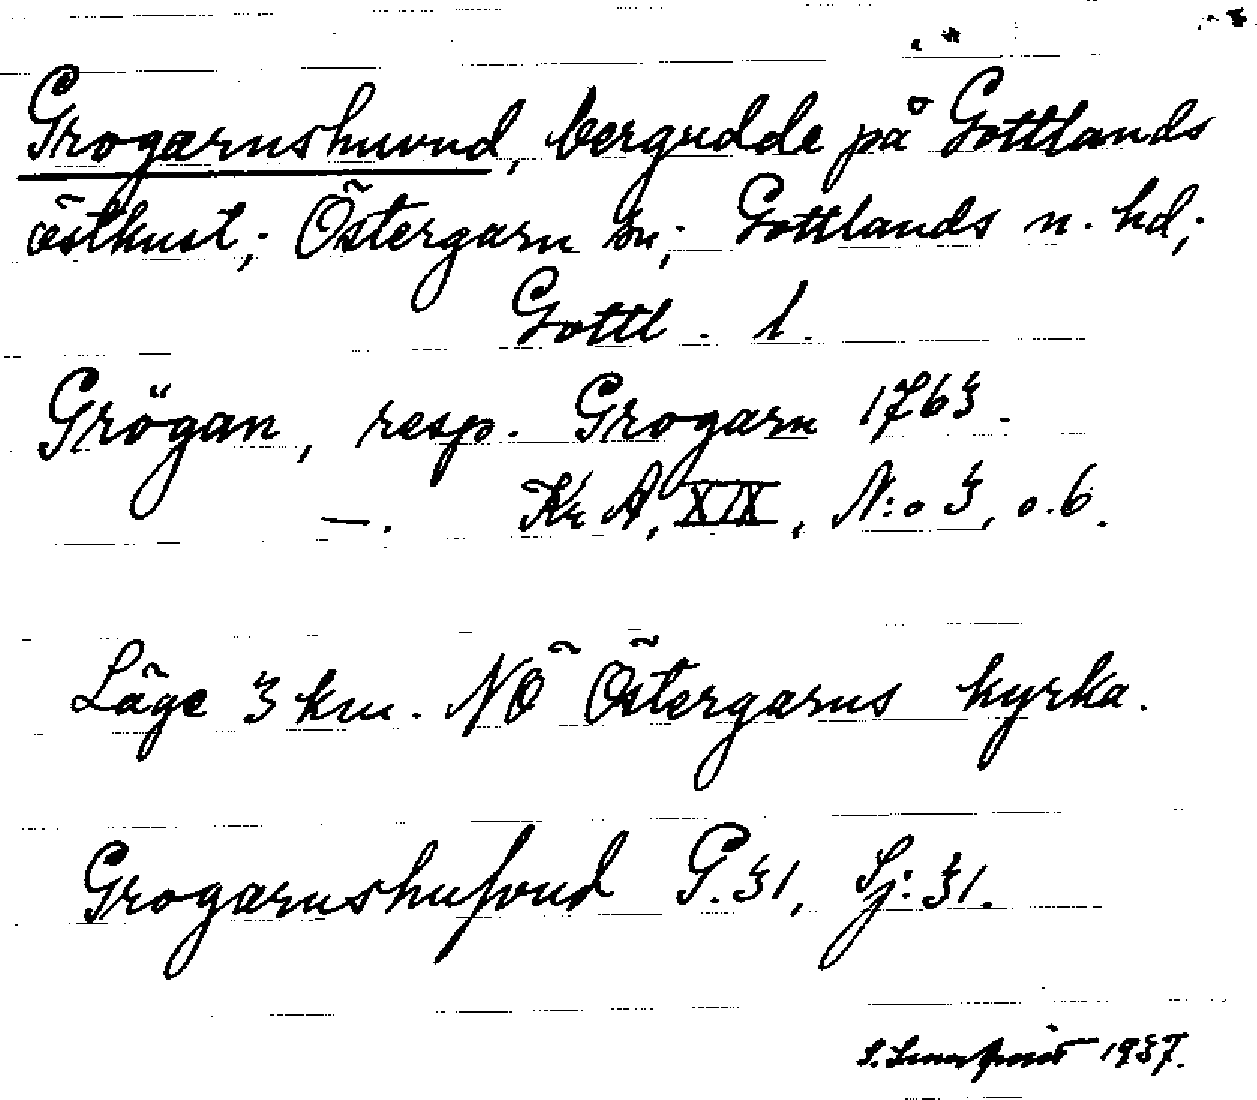 Grogarnshuvud, bergudde på Gottlands
östkust; Östergarn sn; Gottlands n. hd;
Gottl. l.
Grögan, resp. Grogarn 1763.
—. Kr A, XIX, N:o 3, o.6.
Läge 3 km. NÖ Östergarns kyrka.
Grogarnshufvud G.31, Sj:31.
S. 1937.